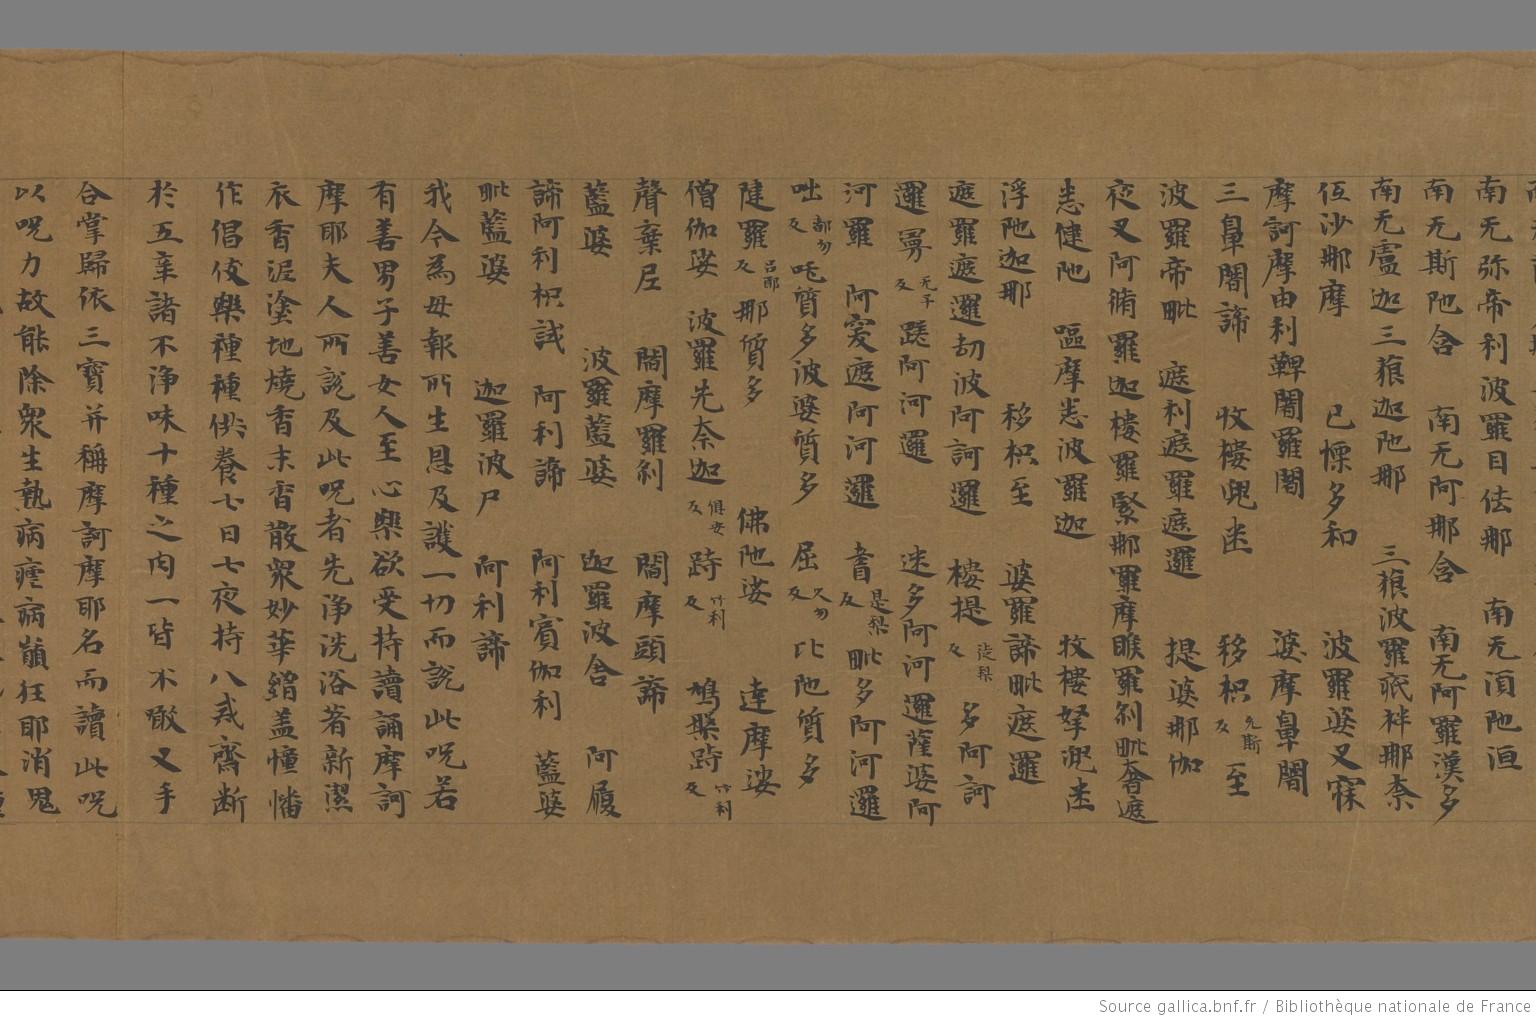 南无弥帝利波羅目佉那 南无須陁洹
南无斯陁含 南无阿那含 南无阿羅漢多
南无盧迦三猿迦陁那 三猿波羅祇袢那奈
恆沙那摩 已慄多和 波羅婆叉寐
摩訶摩由利鞞闍羅闍 婆摩皐闍
三皐闍諦 牧樓兜坔 移枳 反 至
波羅帝毗 遮利遮羅遮邏 提婆那伽
夜叉阿脩羅迦樓羅緊那羅摩睺羅剎毗奢遮
悉健陁 嘔摩悉波羅迦 牧樓孥兜坔
浮陁迦耶 移枳至 婆羅諦毗遮邏
遮羅遮邏劫波阿訶邏 樓提 徒梨反 多阿訶
邏 反 蹉阿河邏 迷多阿河邏薩婆阿
河羅 阿突遮阿河邏 耆 是梨反 毗多阿河邏
咄 都勿反 吒質多波婆質多 屈 久勿反 比陁質多
陡羅 呂耶反 那質多 佛陁娑 達摩娑
僧伽娑 波羅先奈迦 俱安反 跱 竹利反 鳩槃跱 竹利反
聲棄层 閻摩羅剎 閻摩頭諦
藍婆 波羅藍婆 迦羅波含 阿履
諦阿利枳誐 阿利諦 阿利賓伽利 藍婆
毗藍婆 迦羅波尸 阿利諦
我今為母報所生恩及護一切而說此呪若
有善男子善女人至心樂欲受持讀誦摩訶
摩耶夫人所說及此呪者先淨洗浴著新潔
衣香泥塗地燒香末香散眾妙華繒盖幢幡
作倡伎樂種種供養七日七夜持八戒齋断
於五辛諸不淨味十種之肉一皆不噉又手
合掌歸依三寶并稱摩訶摩耶名而讀此呪
以呪力故能除眾生熱病瘧病顛狂耶消鬼
Source gallica.bnf.fr / Bibliothèque nationale de France